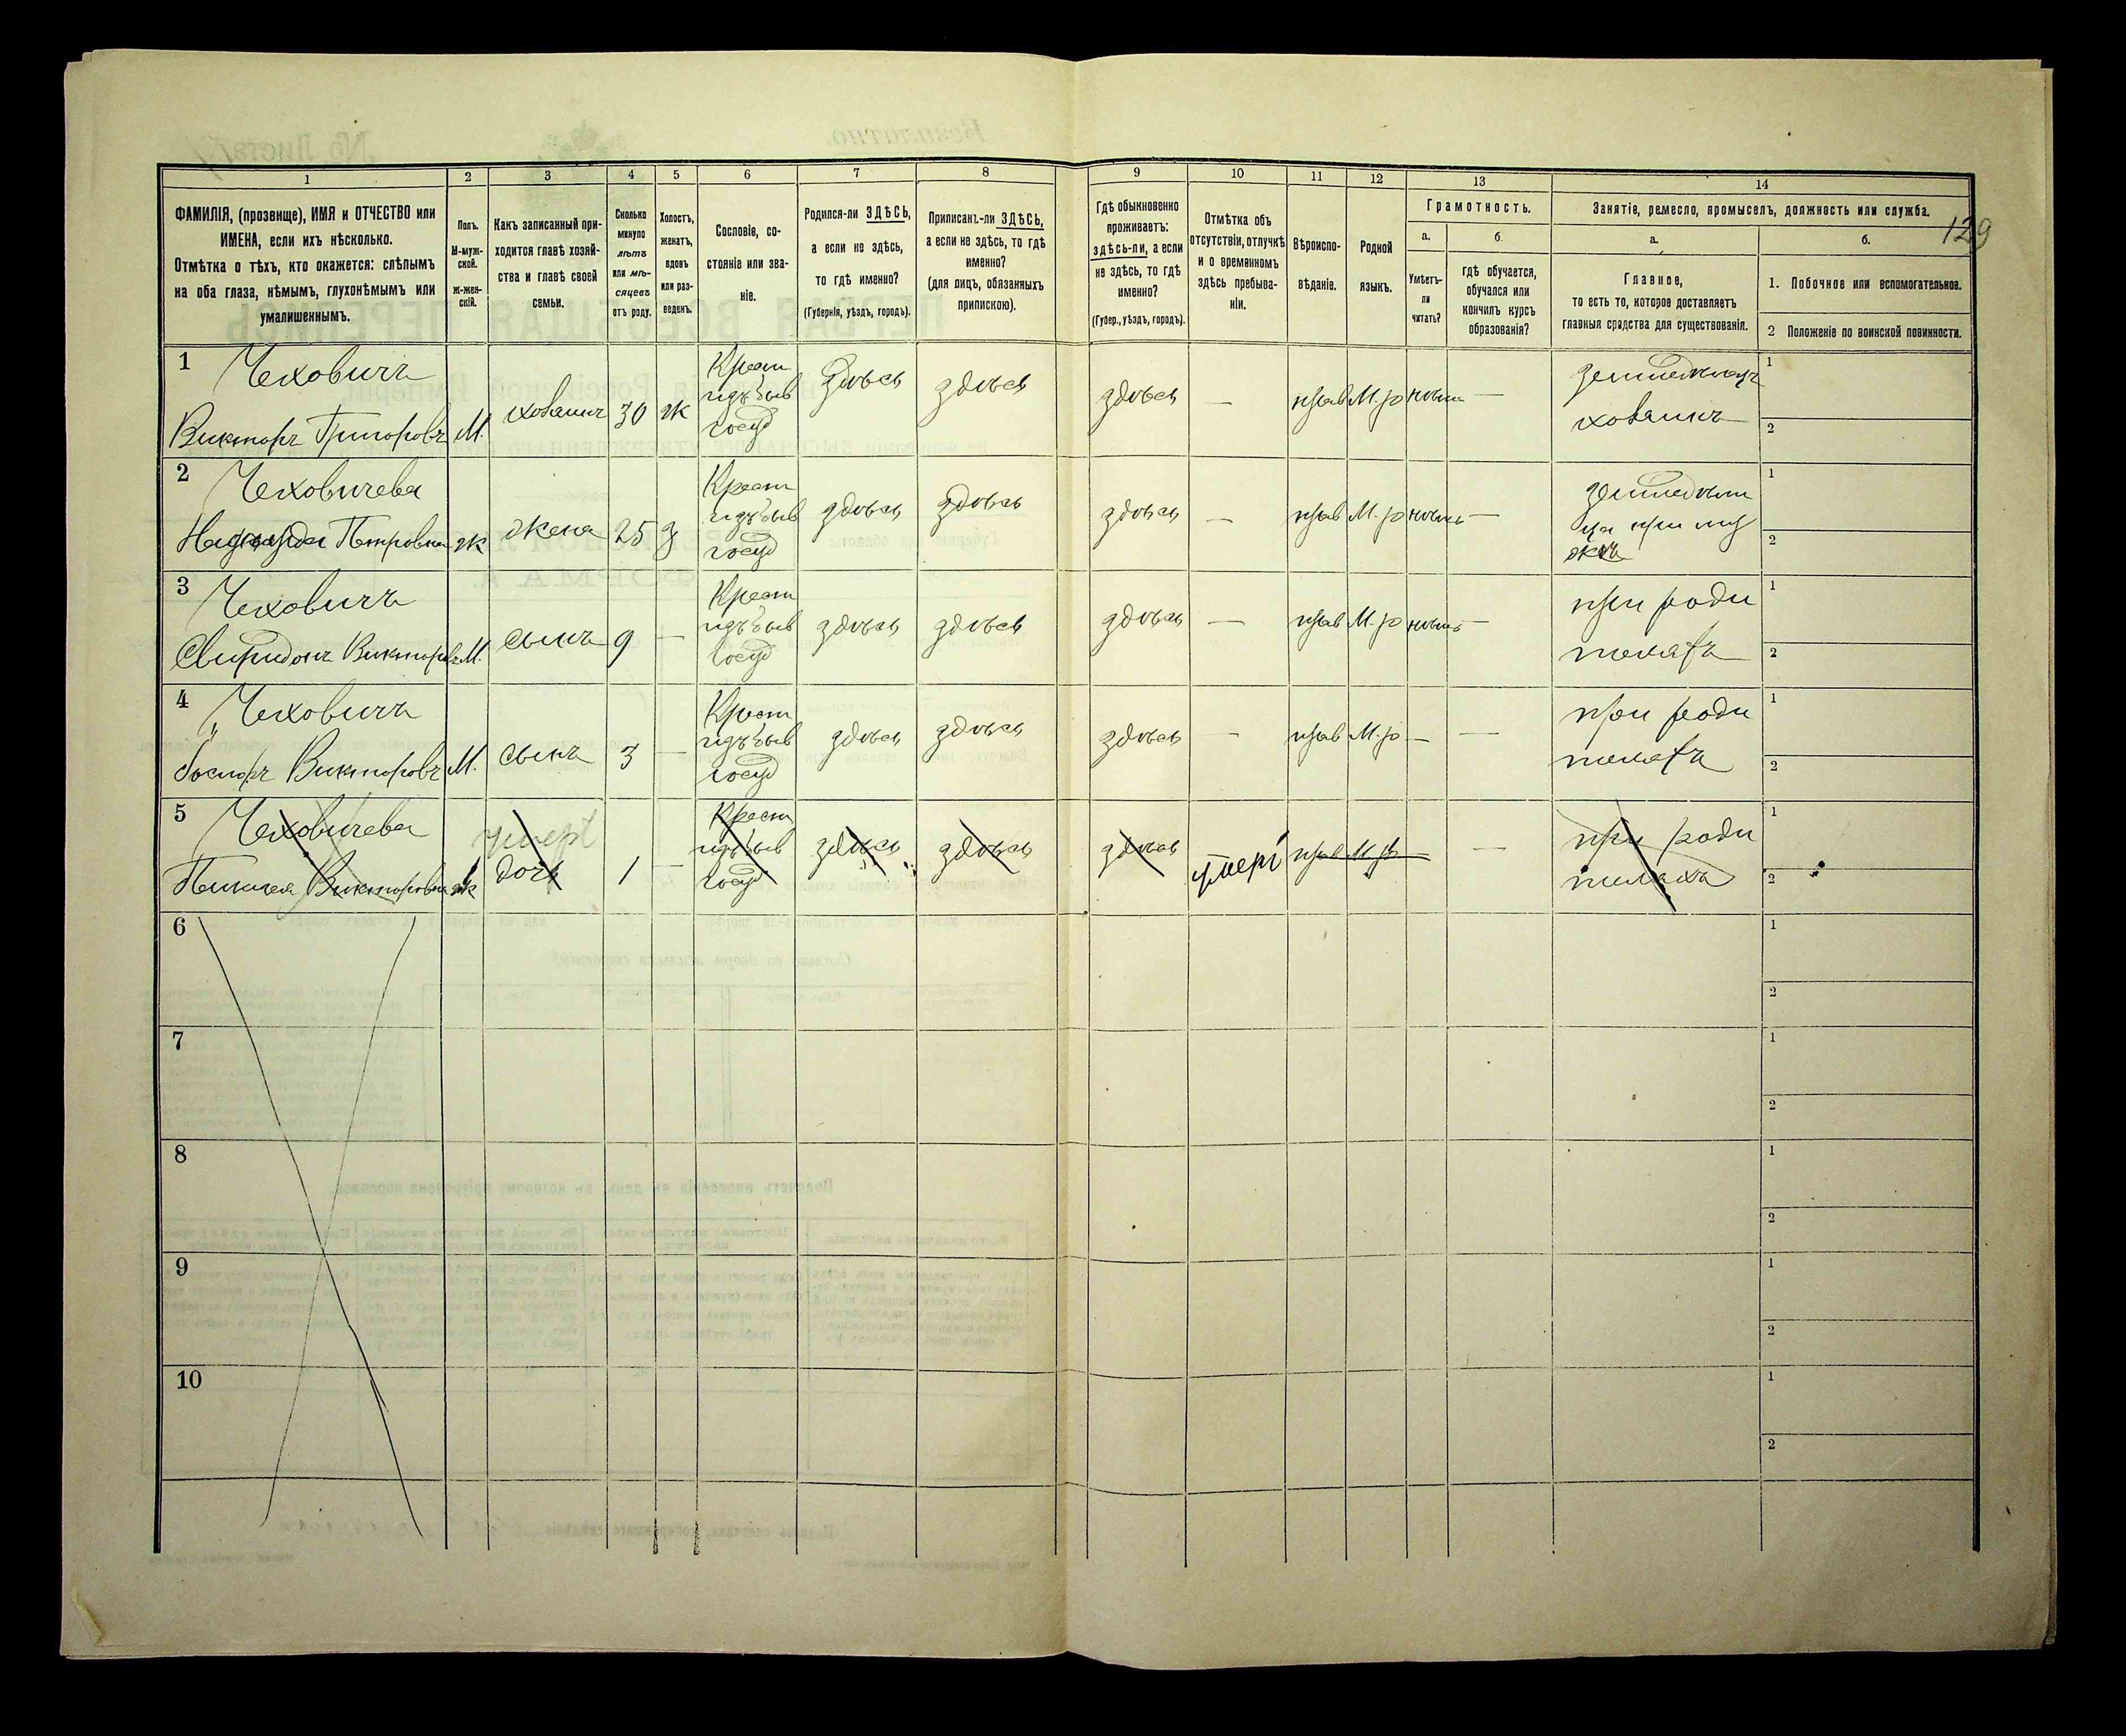 129
1 2 3 4 5 6 7 8 9 10 11 12 13 14
ФАМИЛІЯ, (прозвище), ИМЯ и ОТЧЕСТВО или
ИМЕНА, если ихъ нѣсколько.
Отмѣтка о тѣхъ, кто окажется: слѣпымъ
на оба глаза, нѣмымъ, глухонѣмымъ или
умалишеннымъ.
Полъ.
М-муж-
ской.
Ж-жен-
скій.
Какъ записанный при-
ходится главѣ хозяй-
ства и главѣ своей
семьи.
Сколько
минуло
лѣтъ
или мѣ-
сяцевъ
отъ роду.
Холостъ,
женатъ,
вдовъ
или раз-
веденъ.
Сословіе, со-
стояніе или зва-
ніе.
Родился-ли ЗДѢСЬ,
а если не здѣсь,
то гдѣ именно?
(Губернія, уѣздъ, городъ).
Приписанъ-ли ЗДѢСЬ,
а если не здѣсь, то гдѣ
именно?
(для лицъ, обязанныхъ
припискою).
Гдѣ обыкновенно
проживаетъ:
здѣсь-ли, а если
не здѣсь, то гдѣ
именно?
(Губер., уѣздъ, городъ).
Отмѣтка объ
отсутствіи, отлучкѣ
и о временномъ
здѣсь пребыва-
ніи.
Вѣроиспо-
вѣданіе.
Родной
языкъ.
Грамотность.
а.
Умѣетъ-
ли
читать?
б.
гдѣ обучается,
обучался или
кончилъ курсъ
образованія?
Занятіе, ремесло, промыселъ, должность или служба.
а.
Главное,
то есть то, которое доставляетъ
главныя средства для существованія.
б.
1. Побочное или вспомогательное.
2 Положеніе по воинской повинности.
1 Чеховичъ
Викторъ Григоровъ М. хозяинъ 30 ж
Крест
изъ быв
госуд
здѣсь здѣсь здѣсь — прав М.р нѣтъ —
земледѣлецъ
хозяинъ
1
2
2 Чеховичева
Надежда Петровна ж жена 25 з
Крест
изъ быв
госуд
здѣсь здѣсь здѣсь — прав М.р нѣтъ —
при му
жѣ
1
2
3 Чеховичъ
Свиридонъ Викторовъ М. сынъ 9 —
Крест
изъ быв
госуд
здѣсь здѣсь здѣсь — прав М.р нѣтъ —
при роди
теляхъ
1
2
4 Чеховичъ
Викторовъ М. сынъ 3 —
Крест
изъ быв
госуд
здѣсь здѣсь здѣсь — прав М.р — —
при роди
теляхъ
1
2
5 Чеховичева
Викторовна ж дочь 1 —
умерт
Крест
изъ быв
госуд
здѣсь здѣсь здѣсь умерт прав М.р — —
при роди
теляхъ
1
2
6
1
2
7
1
2
8
1
2
9
1
2
10
1
2